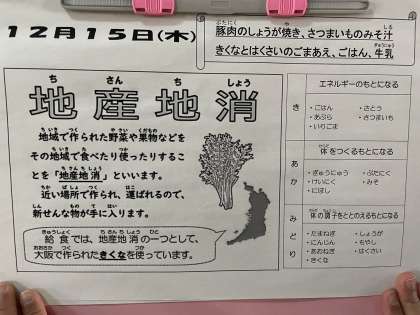 12月15日(木)
豚肉のしょうが焼き、さつまいものみそ汁
きくなとはくさいのごまあえ、ごはん、牛乳
地産地消
地域で作られた野菜や果物などを
その地域で食べたり使ったりするこ
とを「地産地消」といいます。
近い場所で作られ、運ばれるので、
新せんな物が手に入ります。
給食では、地産地消の一つとして、
大阪で作られたきくなを使っています。
エネルギーのもとになる
き
・ごはん ・さとう
・あぶら ・さつまいも
・いりごま
体をつくるもとになる
あか
・ぎゅうにゅう ・ぶたにく
・けいにく ・みそ
・にぼし
体の調子をととのえるもとになる
みどり
・たまねぎ ・しょうが
・にんじん ・もやし
・あおねぎ ・はくさい
・きくな